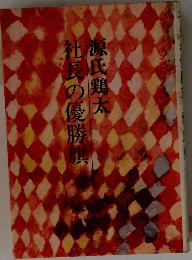 源氏鶏太
社長の優勝旗